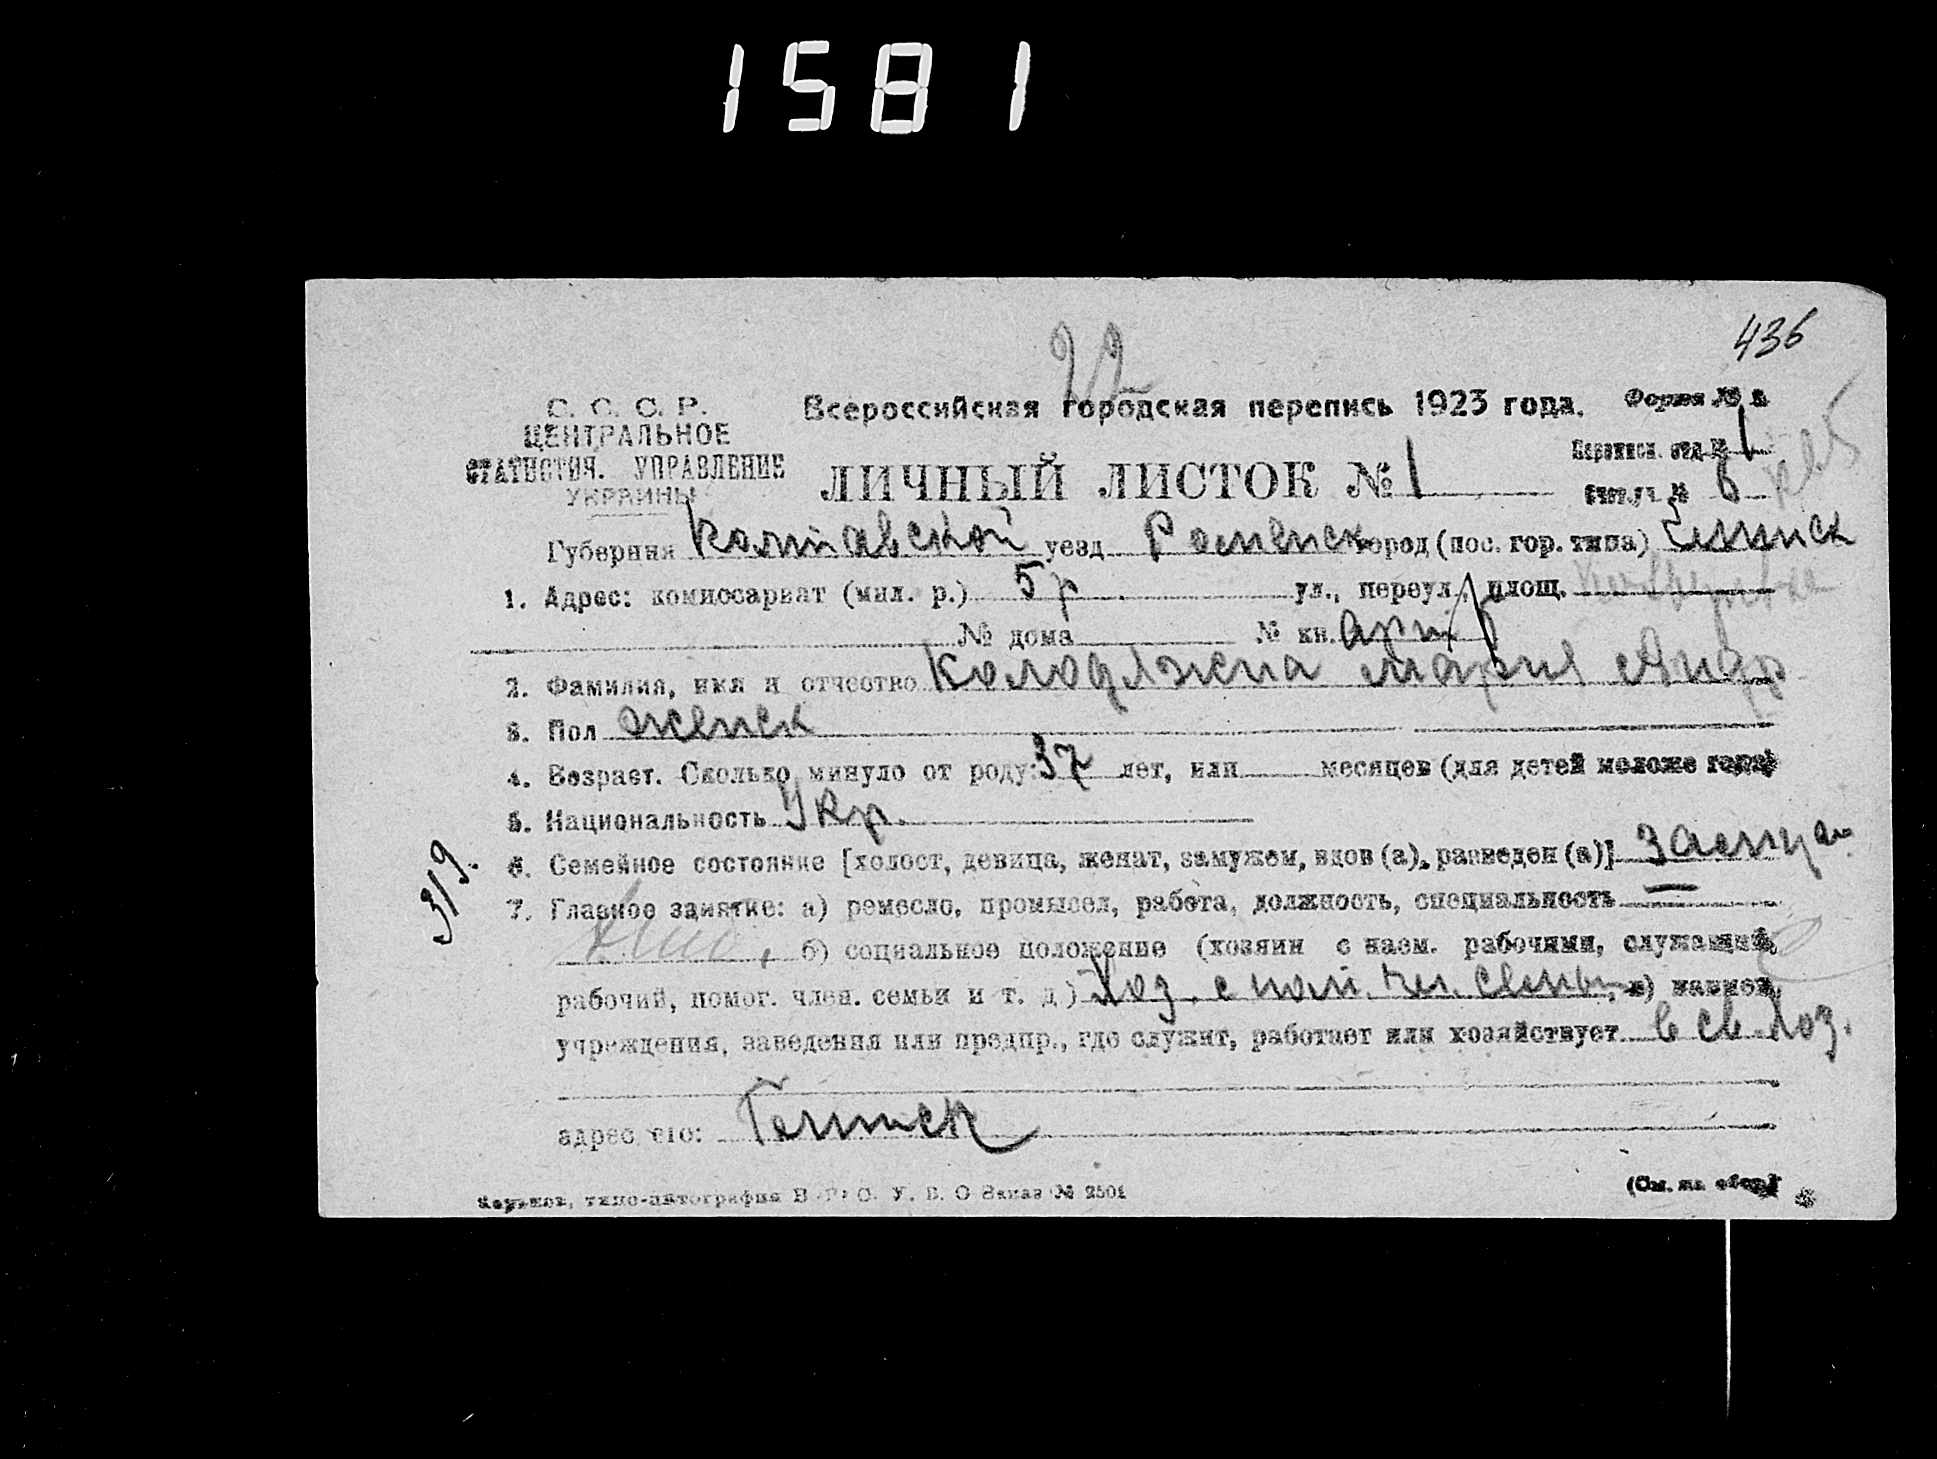 1581
436
22
С. С. С. Р.
ЦЕНТРАЛЬНОЕ
СТАТИСТИЧ. УПРАВЛЕНИЕ
УКРАИНЫ
Всероссийская городская перепись 1923 года.
Форма № 2
ЛИЧНЫЙ ЛИСТОК № 1
Переписн. отд. № 1
Счетн. уч. № 6
Губерния Полтавской уезд Роменск город (пос. гор. типа)
1. Адрес: комиссариат (мил. р.) 5 р. ул., переул., площ.
№ дома № кв.
2. Фамилия, имя и отчество Колодяжна Мария Андр
3. Пол женск
4. Возраст. Сколько минуло от роду: 37 лет, или месяцев (для детей моложе года)
5. Национальность Укр.
6. Семейное состояние [холост, девица, женат, замужем, вдов (а), разведен (а)] замуж
319.
7. Главное занятие: а) ремесло, промысел, работа, должность, специальность —
, б) социальное положение (хозяин с наем. рабочими, служащий,
рабочий, помог. член. семьи и т. д.) Хоз. с пом. чл. семьи, в) наимен.
учреждения, заведения или предпр., где служит, работает или хозяйствует в св хоз.
адрес его:
Харьков, типо-литография В. У. В. О Заказ № 2501
(См. на обор.)